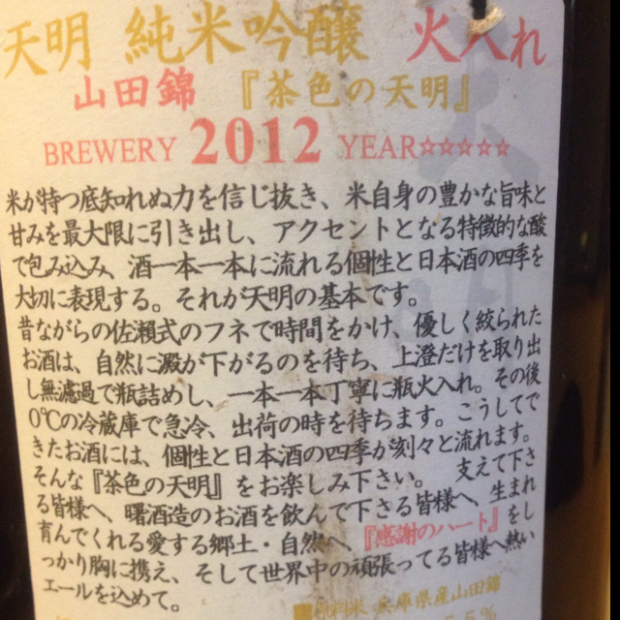 天明 純米吟醸 火入れ
山田錦 『茶色の天明』
BREWERY 2012 YEAR☆☆☆☆☆
米が持つ底知れぬ力を信じ抜き、米自身の豊かな旨味と
甘みを最大限に引き出し、アクセントとなる特徴的な酸
で包み込み、酒一本一本に流れる個性と日本酒の四季を
大切に表現する。それが天明の基本です。
昔ながらの佐瀬式のフネで時間をかけ、優しく絞られた
お酒は、自然に澱が下がるのを待ち、上澄だけを取り出
し無濾過で瓶詰めし、一本一本丁寧に瓶火入れ。その後
0℃の冷蔵庫で急冷、出荷の時を待ちます。こうしてで
きたお酒には、個性と日本酒の四季が刻々と流れます。
そんな『茶色の天明』をお楽しみ下さい。 支えて下さ
る皆様へ、曙酒造のお酒を飲んで下さる皆様へ、生まれ
育んでくれる愛する郷土・自然へ、『感謝のハート』をし
っかり胸に携え、そして世界中の頑張ってる皆様へ熱い
エールを込めて。
兵庫県産山田錦
5%